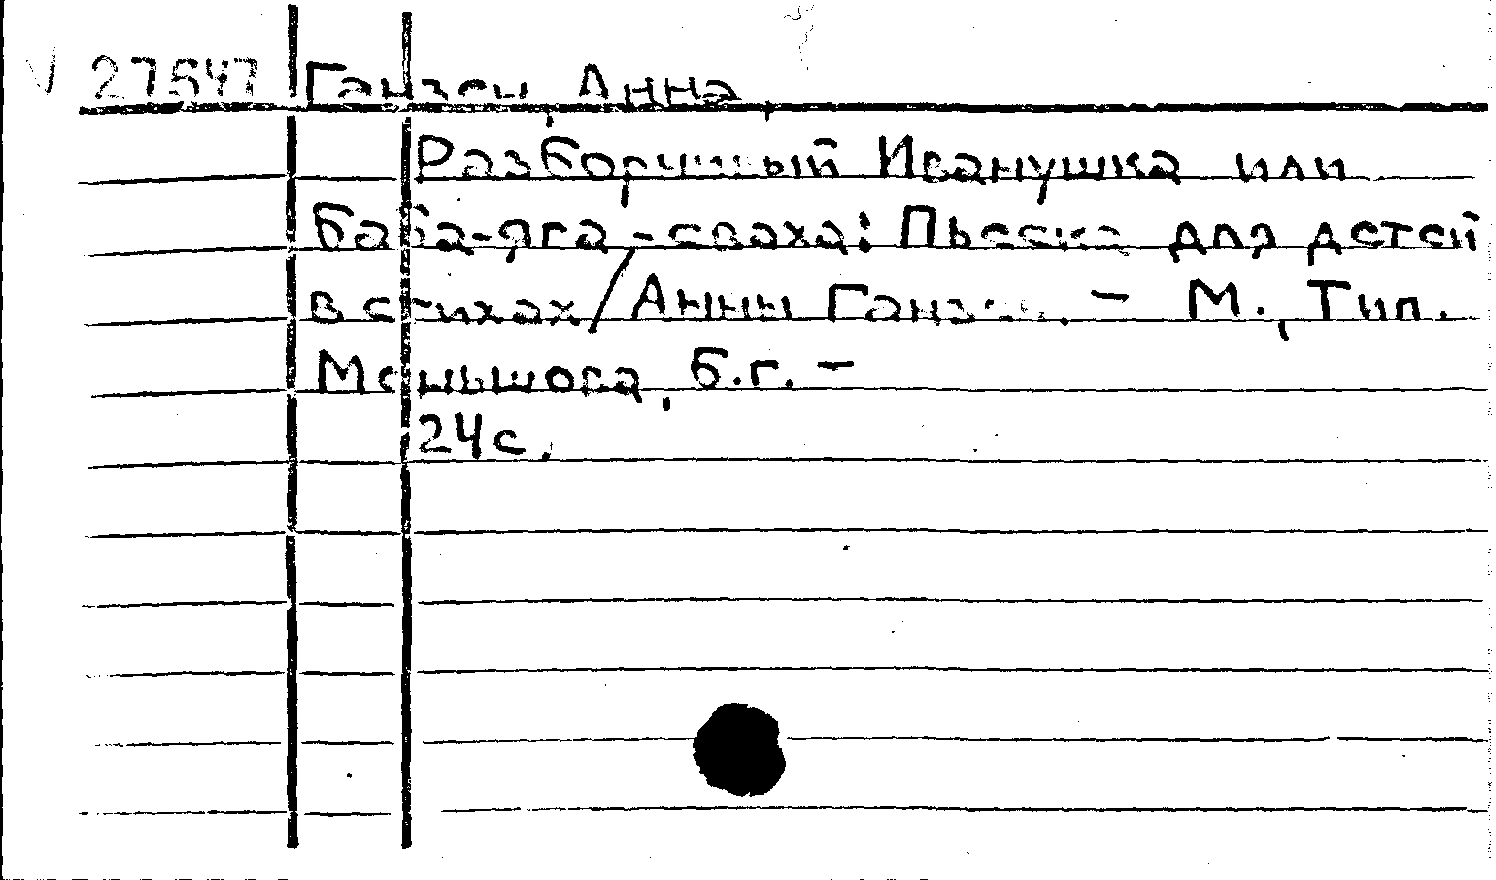 V 27547 Ганзен, Анна,
Разборчивый Иванушка или
баба-яга-сваха: Пьеска для детей
в стихах/Анны Ганзен. – М., Тип.
Меньшова, б.г. –
24с.